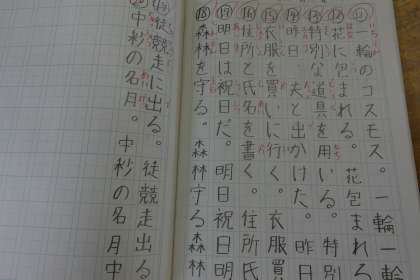 ⑪一輪のコスモス。一輪一輪
⑫花に包まれる。花包まれる
⑬特別な道具を用いる。特別
⑭昨日、夫と出かけた。昨日
⑮衣服を買いに行く。衣服買
⑯住所と氏名を書く。住所氏
⑰明日は祝日だ。明日祝日明
⑱森林を守る。森林守る森林
⑲徒競走に出る。徒競走出る
⑳中秋の名月。中秋の名月中